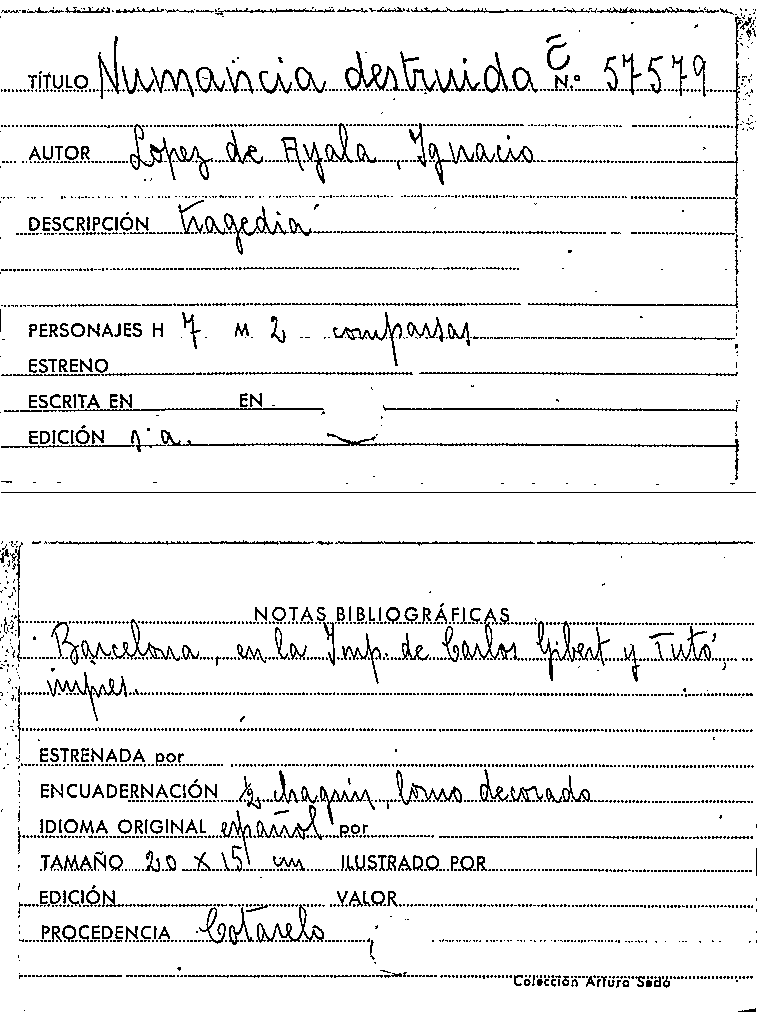 TÍTULO Numancia destruida C̄ N.º 57579
AUTOR Lopez de Ayala, Ignacio
DESCRIPCIÓN tragedia
PERSONAJES H 7 M 2 comparsas
ESTRENO
ESCRITA EN EN
EDICIÓN s.a.
NOTAS BIBLIOGRÁFICAS
Barcelona, en la Imp. de Carlos Gibert y Tutó,
impres.
ESTRENADA por
ENCUADERNACIÓN ½ chagrin, lomo decorado
IDIOMA ORIGINAL español por
TAMAÑO 20 X 15 cm ILUSTRADO POR
EDICIÓN VALOR
PROCEDENCIA Cotarelo
Colección Arturo Sedó